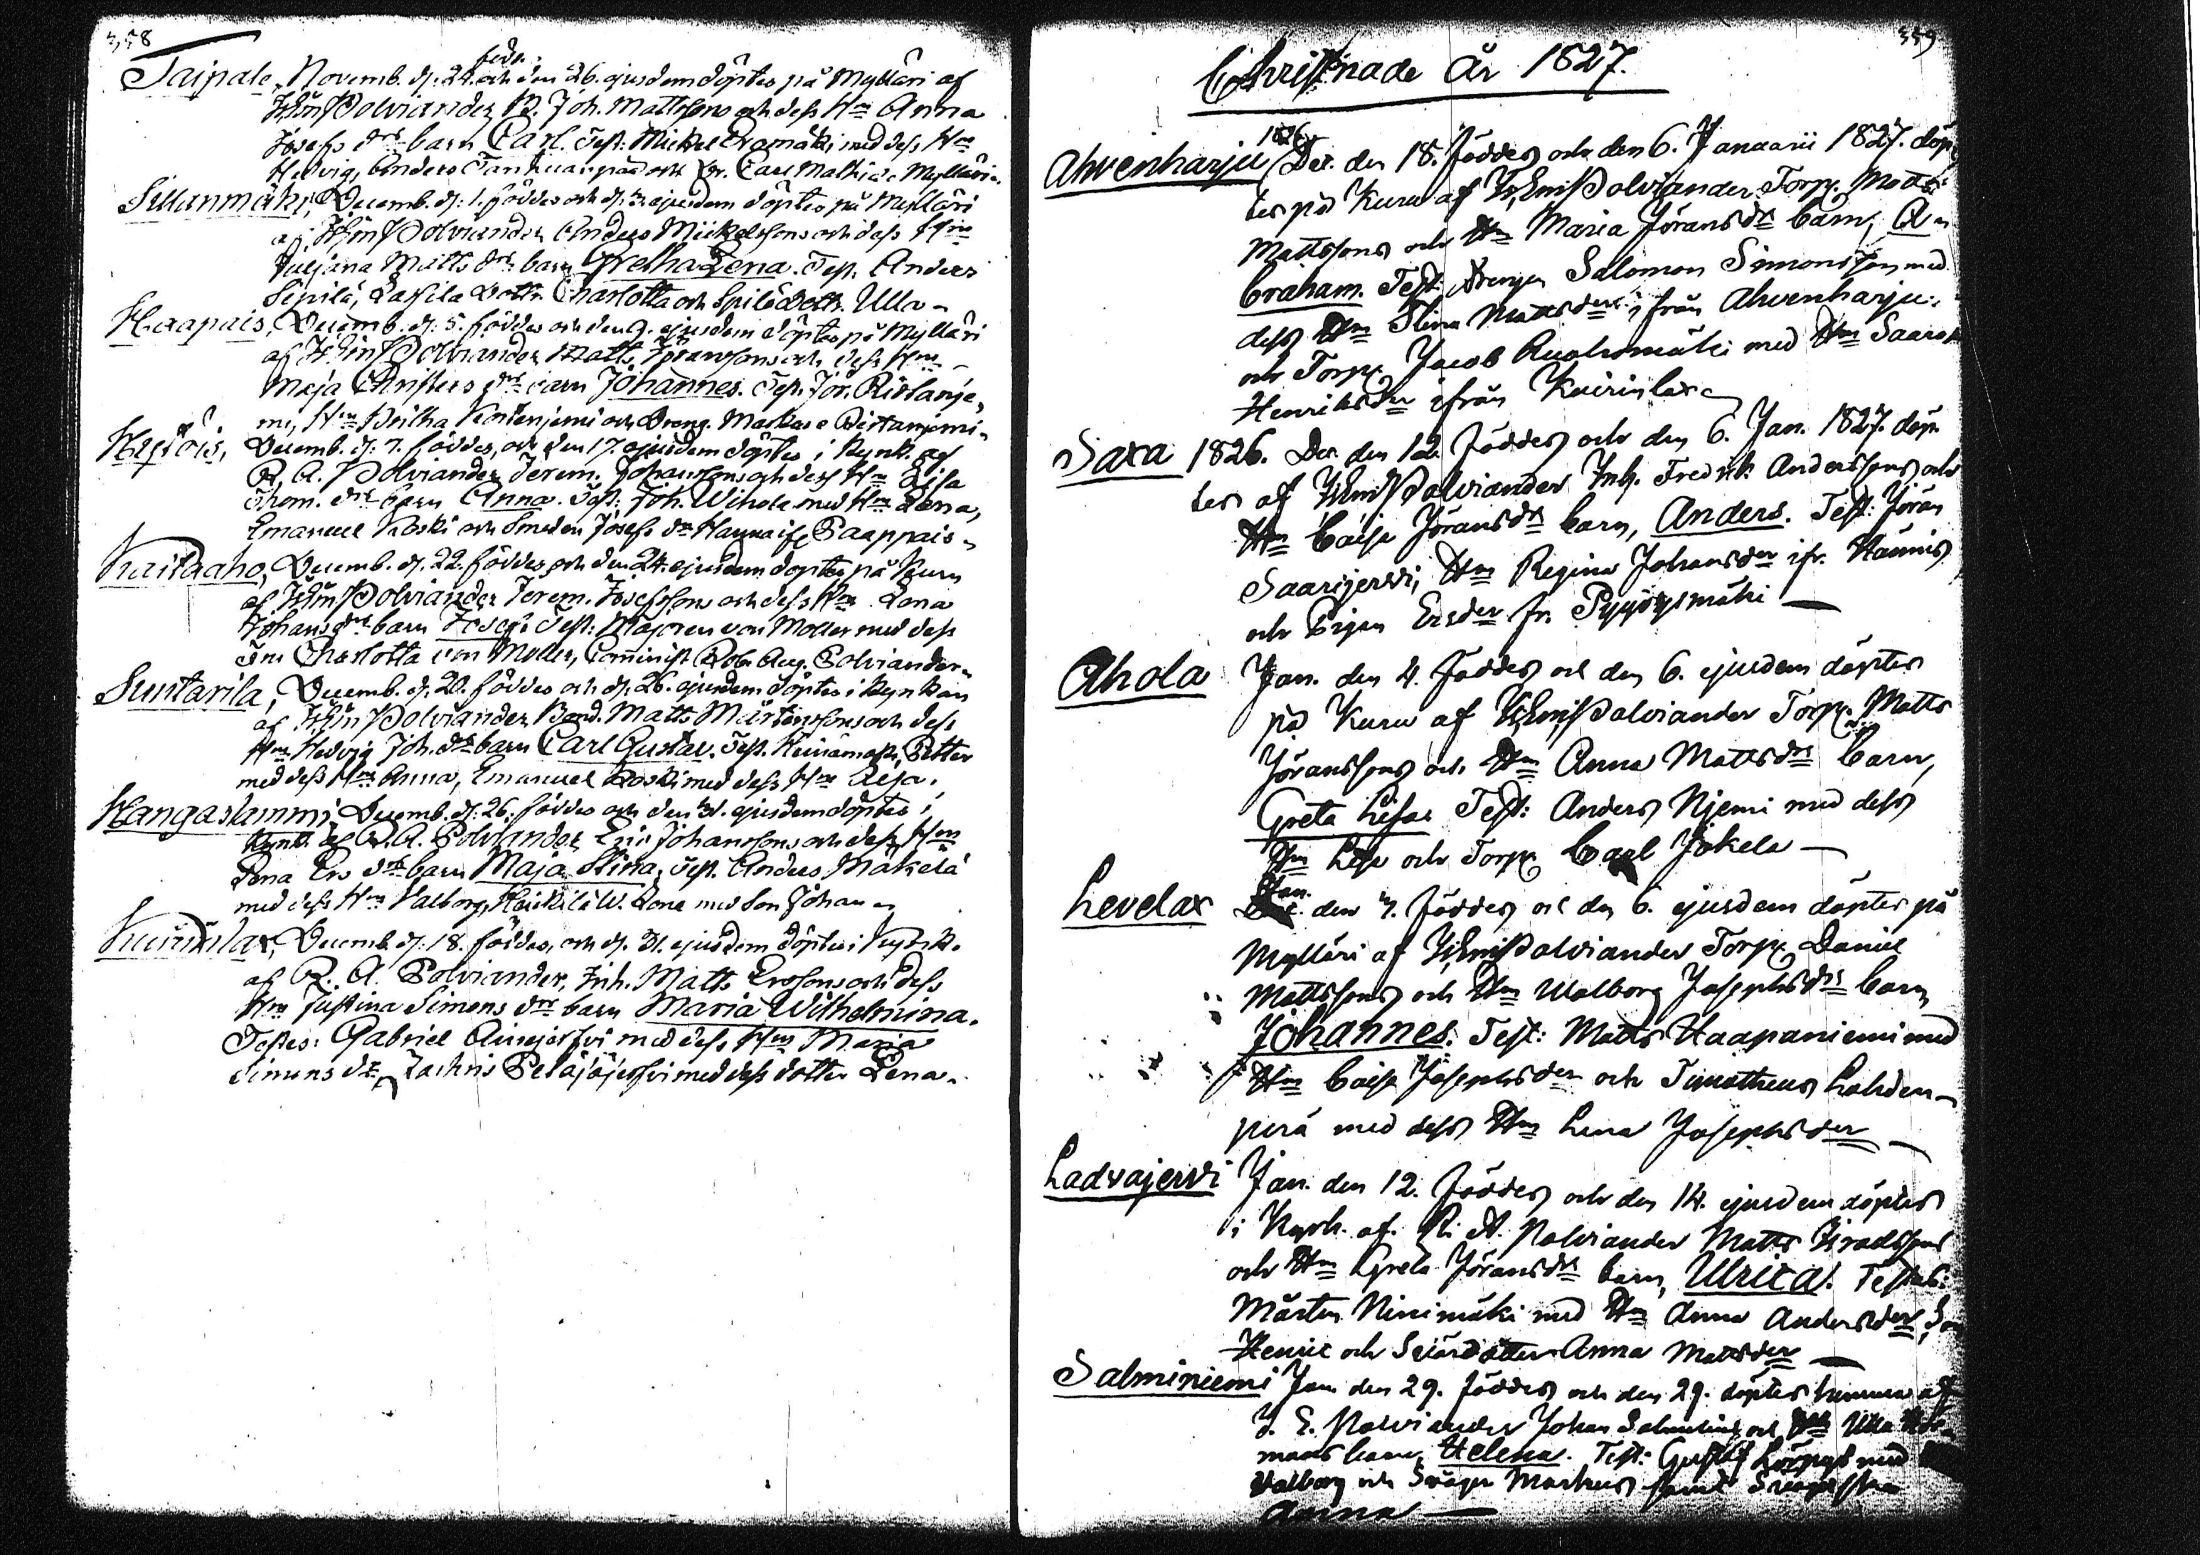 358
Taipale, Novemb. d. 24. föds. och den 26. ejusdem döptes på Mylläri af
J. Em. Polviander B. Joh. Mattssons och dess Hu Anna
Josephs drs barn Carl. Test: Mickel Oramäki med dess Hu
Hedvig, Anders
Sillanmäki, Decemb. d. 1. föddes och d. 3 ejusdem döptes på Mylläri
af J. Em. Polviander Anders Mickelssons och dess Hu
Juljana Matts drs barn Gretha Lena. Test. Anders
Sipilä, Lassila Dottr. Charlotta och Spilä Dottr. Ulla
Haapais, Decemb. d. 5. föddes och den 9. ejusdem döptes på Mylläri
af J. Em. Polviander Matts Jöranssons och dess Hu
Maja Christers drs barn Johannes. Test. Jör. Ristanje-
mi, Hu Britha och Dreng. Markus Ristaniemi
Decemb. d. 7. föddes, och den 17. ejusdem döptes i Kyrk. af
R. A. Polviander Jerem. Johanssons och dess Hu Lisa
Thom. drs barn Anna. Test. Joh. Wihola med Hu Lena,
Emanuel Koski och Smeden Josefs dr Hanna if. Paappais
Kaitaaho, Decemb. d. 22. föddes och den 24. ejusdem döptes på Kuru
af J. Em. Polviander Jerem. Josefssons och dess Hu Lena
Johans drs barn Josef. Test: Majoren von Moller med dess
Fru Charlotta von Moller, Cominist. Rob. Aug. Polviander
Suntarila, Decemb. d. 20. föddes och d. 26. ejusdem döptes i Kyrkan
af J. Em. Polviander Bond. Matts Mårtenssons och dess
Hu Hedvig Joh. drs barn Carl Gustav. Test. Petter
med dess Hu Anna, Emanuel Koski med dess Hu
Kangaslammi, Decemb. d. 26. föddes och den 31. ejusdem döptes i
Kyrk. af R. A. Polviander Eric Johanssons och dess Hu
Lena Ers drs barn Maja Stina, Test. Anders Mäkelä
med dess Hu Valborg, Heikkilä W. Lena med Son Johan
Decemb. d. 18. föddes, och d. 31. ejusdem döptes i Kyrk.
af R. A. Polviander, Inh. Matts Erssons och dess
Hu Justina Simons drs barn Maria Wilhelmina.
Testes: Gabriel med dess Hu Maria
Simons dr, Zachris Petäjäjerfvi med dess dotter Lena
359
Christnade År 1827.
Ahvenharju 1826 Dec. den 18. föddes och den 6. Januarii 1827. döp-
tes på Kuru af J. Em. Polviander Torp. Matts
Mattssons och Hu Maria Jöransdrs barn, A-
braham. Test: Drengen Salomon Simonsson med
dess Hu Stina Mattsder ifrån Ahvenharju,
och Torp. Jacob Ruohomäki med Hu Saara
Henriksder ifrån Kuirinlax
Saxa 1826. Dec. den 12. föddes och den 6. Jan. 1827. döp-
tes af J. Em. Polviander Inh. Fredrik Anderssons och
Hu Caisa Jöransdrs barn, Anders. Test: Jöran
Saarijervi, Hu Regina Johansder ifr. Hännis
och Pigan Ersder fr. Pyyöysmäki
Ahola Jan. den 4. föddes och den 6. ejusdem döptes
på Kuru af J. Em. Polviander Torp. Matts
Jöranssons och Hu Anna Mattsdrs barn,
Greta Lisa. Test: Anders Njemi med dess
Hu Lisa och Torp. Carl Jokela
Levelax Jan. den 4. föddes och den 6. ejusdem döptes på
Mylläri af J. Em. Polviander Torp. Daniel
Mattssons och Hu Walborg Josephsdrs barn
Johannes. Test: Matts Haapaniemi med
Hu Caisa Josephsder och Timotheus Lahden-
perä med dess Hu Lena Josephsder
Ladvajervi Jan. den 12. föddes och den 14. ejusdem döptes
i Kyrk. af R. A. Polviander Matts
och Hu Greta Jöransdrs barn, Ulrica. Testes:
Mårten Ninimäki med Hu Anna Andersder, Son
Henric och Svärdotter Anna Mattsder
Salminiemi Jan. den 29. föddes och den 29. döptes hemma af
J. E. Polviander Johan och Hu Ulla
barn, Helena. Test: Gustaf med
Valborg och Svåger Markus samt
Anna